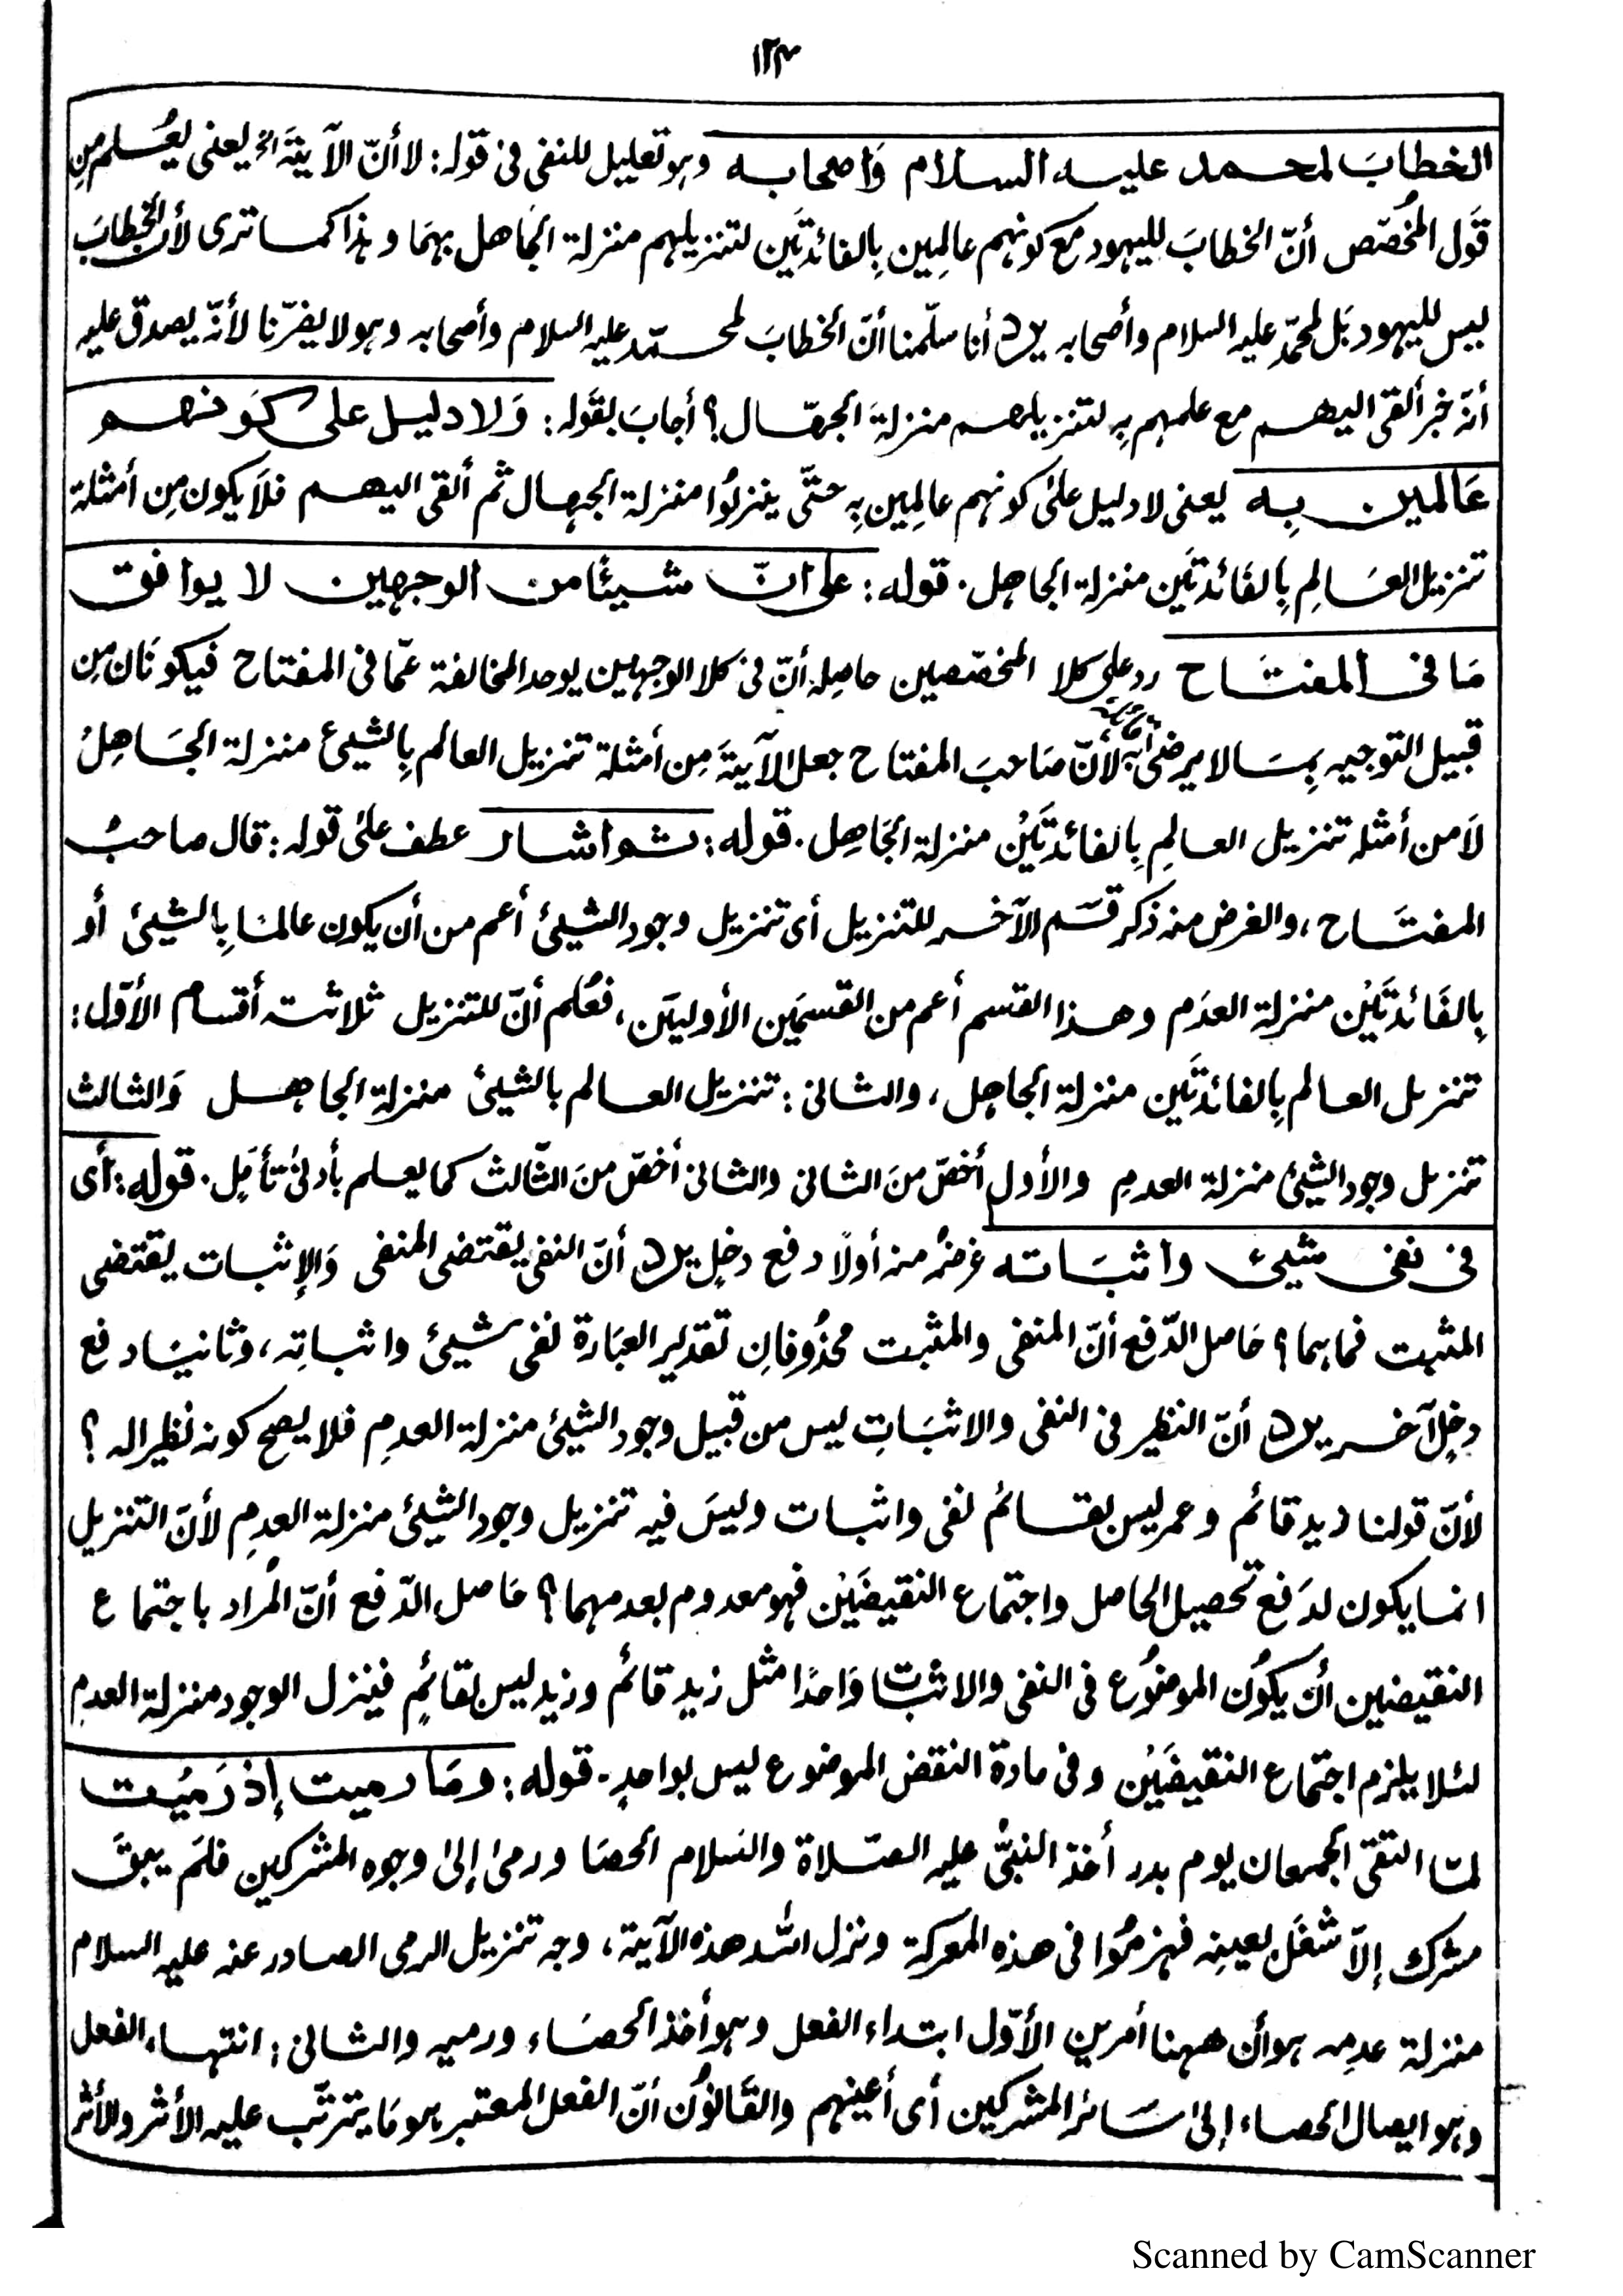 ١٢٣
الخطابَ لمحمد عليه السلام وَاصحابه وہو تعليل للنفى فى قوله: لا أنّ الآيةَ الخ يعنى يُعلم مِن
قَول المُخصّص أنّ الخطابَ لليہود مع كونہم عالِمِين بِالفائدتَين لتنزيلہم منزلة الجَاهل بہمَا وہذا كما ترى لأنّ الخطابَ
ليس لليہود بَل لمحمّد عليہ السلام وأصحابہ يرد أنا سلّمنا أنّ الخطابَ لمحمّد عليہ السلام وأصحابہ وہو لا يضرّنا لأنّہ يصدق عليہ
أنّہ خبر ألقى اليهم مع علمہم بِہ لتنزيلهم منزلةَ الجہّال؟ أجابَ بقَولہ: وَلا دليل على كَونهم
عَالمين بِه يعنى لا دليل علىٰ كونہم عالِمِين بِہ حتَّى ينزلُوا منزلة الجہال ثم ألقى اليهم فلاَ يكون مِن أمثلة
تنزيل العَالِم بِالفَائدتَين منزلة الجاهل. قوله: على انّ شيئًا من الوجهين لا يوافق
مَا فى المفتَاح رد على كلا المخصّصين حاصِلہ أنّ فى كلا الوجہين يوجد المخالفة عمّا فى المفتاح فيكونَان مِن
قبيل التوجيہ بِمَا لا يرضىٰ بہ لأنّ صَاحبَ المفتاح جعل الآيةَ مِن أمثلة تنزيل العالم بِالشيئ منزلة الجَاهِلُ
لَا من أمثلہ تنزيل العالِمِ بِالفائدتَيْن منزلة الجَاهِل. قوله: ثم اشار عطف علىٰ قولہ: قال صاحبُ
المفتَاح، والغرض منہ ذكر قسَم الآخر للتنزيل أى تنزيل وجود الشيئ أعم من أن يكون عالمًا بِالشيئ أو
بِالفَائدتَيْن منزلة العدَم وهذا القسم أعم من القسمَين الأوليَن، فعُلم أنّ للتنزيل ثلاثة أقسام الأوّل:
تنزيل العالم بِالفائدتَين منزلة الجاهل، والثانى: تنزيل العالم بالشيئ منزلة الجاهل وَالثالث
تنزيل وجود الشيئ منزلة العدمِ والأول أخصّ منَ الثانى والثانى أخصّ منَ الثّالث كما يعلم بأدنىٰ تأمّلٍ. قوله: أى
فى نفى شيئ واثبَاته غرضُہ منہ أولًا دفع دخلٍ يرد أنّ النفى يقتضى المنفى وَالإثبات يقتضى
المثبت فما ہما؟ حَاصل الدّفع أنّ المنفى والمثبت محذُوفانِ تقدير العبَارة نفى شيئ واثباتِہ، وثانيًا دفع
دخلٍ آخر يرد أنّ النظير فى النفى والاثبَاتِ ليس من قبيل وجود الشيئ منزلة العدمِ فلا يصح كونہ نظيرالہ؟
لأنّ قولنا زيد قائم وعمر ليس بقائم نفى واثبات وليسَ فيہ تنزيل وجود الشيئ منزلة العدمِ لأنّ التنزيل
انما يكون لدَفع تحصيل الحاصل واجتماع النقيضَيْن فہو معدوم بعدمہما؟ حَاصل الدّفع أنّ المُراد باجتماع
النقيضين أن يكوُن الموضُوع فى النفى والاثبات وَاحدًا مثل زيد قائم وزيد ليس بقائمٍ فينزل الوجود منزلة العدمِ
لئلا يلزم اجتماع النقيضَيْن وفى مادة النقض الموضوع ليس بواحدٍ. قوله: ومَا رميت إذ رَمَيْت
لمّا التقى الجمعان يوم بدر أخذ النبىُّ عليہ الصّلاة والسَلام الحصَا ورمىٰ إلىٰ وجوہ المشركين فلَم يبقَ
مشرك إلاّ شغَل بعينِہ فہزمُوا فى هذہ المعركة ونزل اللّٰہ هذہ الآية، وجہ تنزيل الرمى الصادر عنہ عليہ السلام
منزلة عدمِہ ہو أن ههنا أمرين الأوّل ابتداء الفعل وہو أخذ الحصَاء ورميہ والثانى: انتهاء الفعل
وہو ايصال الحصاء إلىٰ سَائر المشركين أى أعينہم والقَانوُن أنّ الفعل المعتبر ہو مَا يترتّب عليہ الأثر والأثر
Scanned by CamScanner